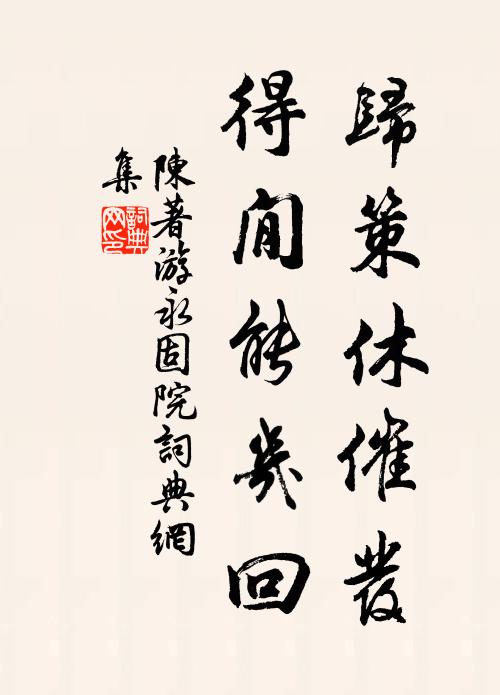 歸策休催發
得閒能幾回
陳著游永固院詞典網
集
詞典網印